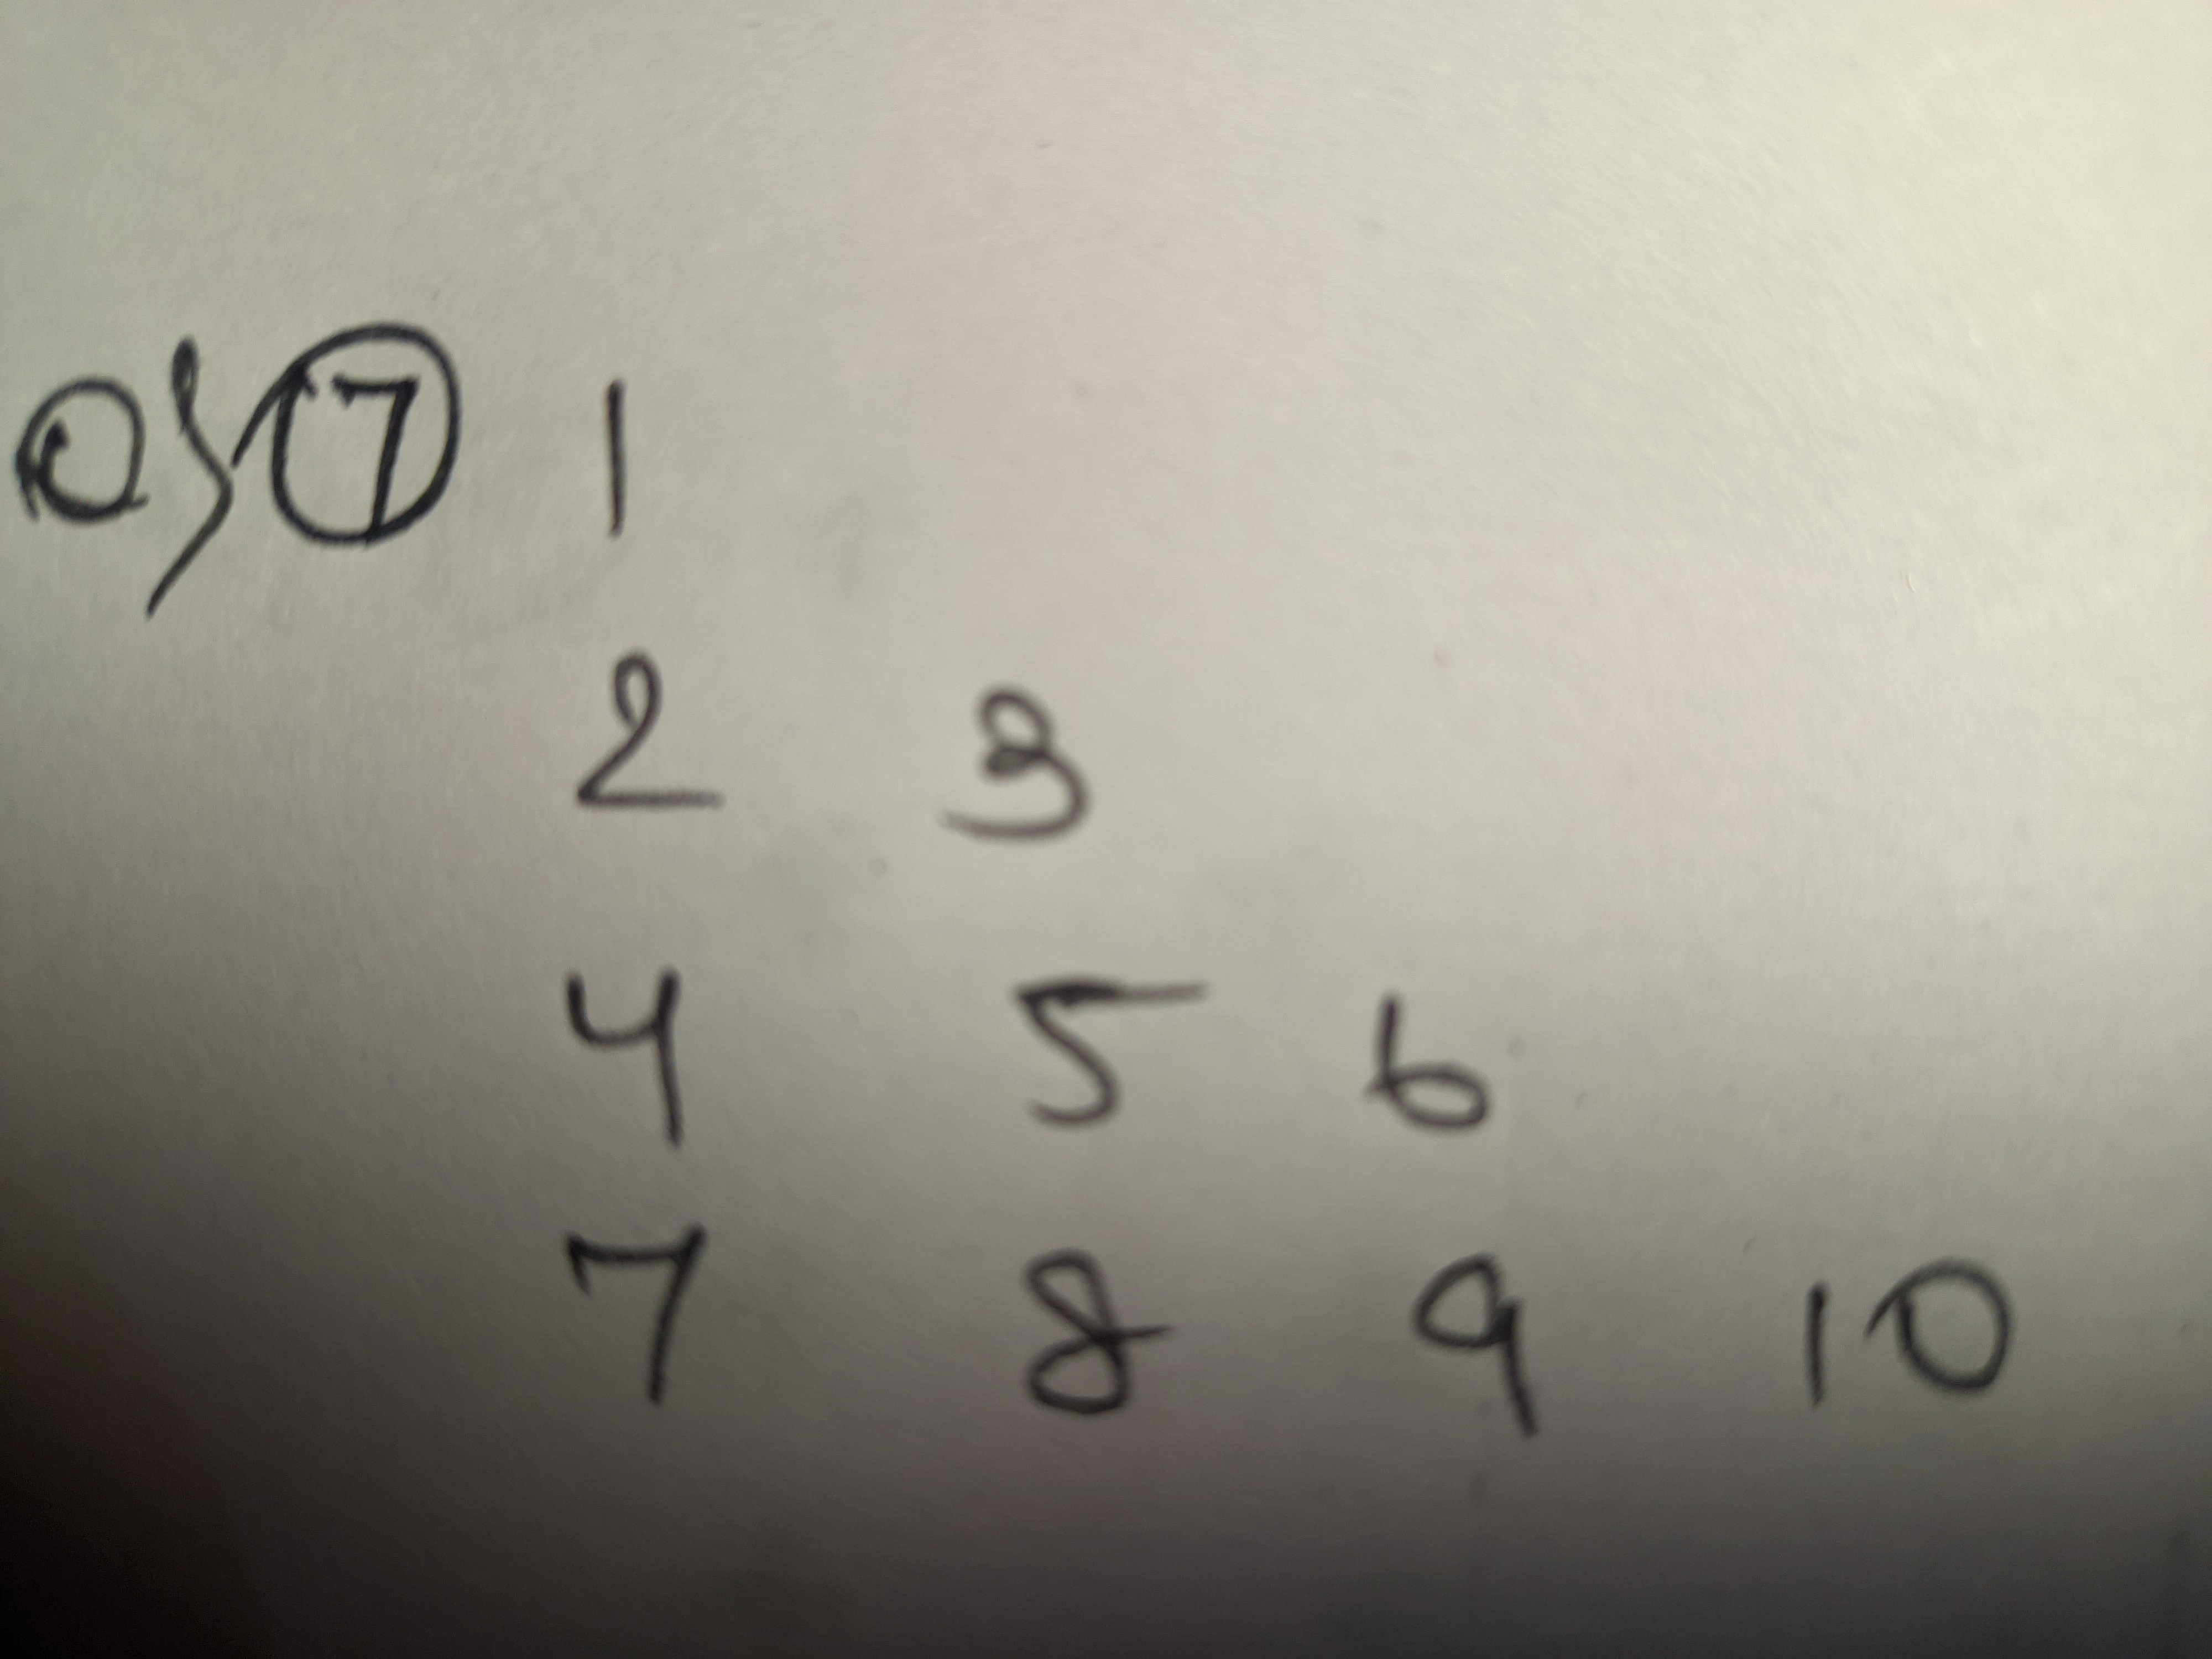 Q7 1
2 3
4 5 6
7 8 9 10